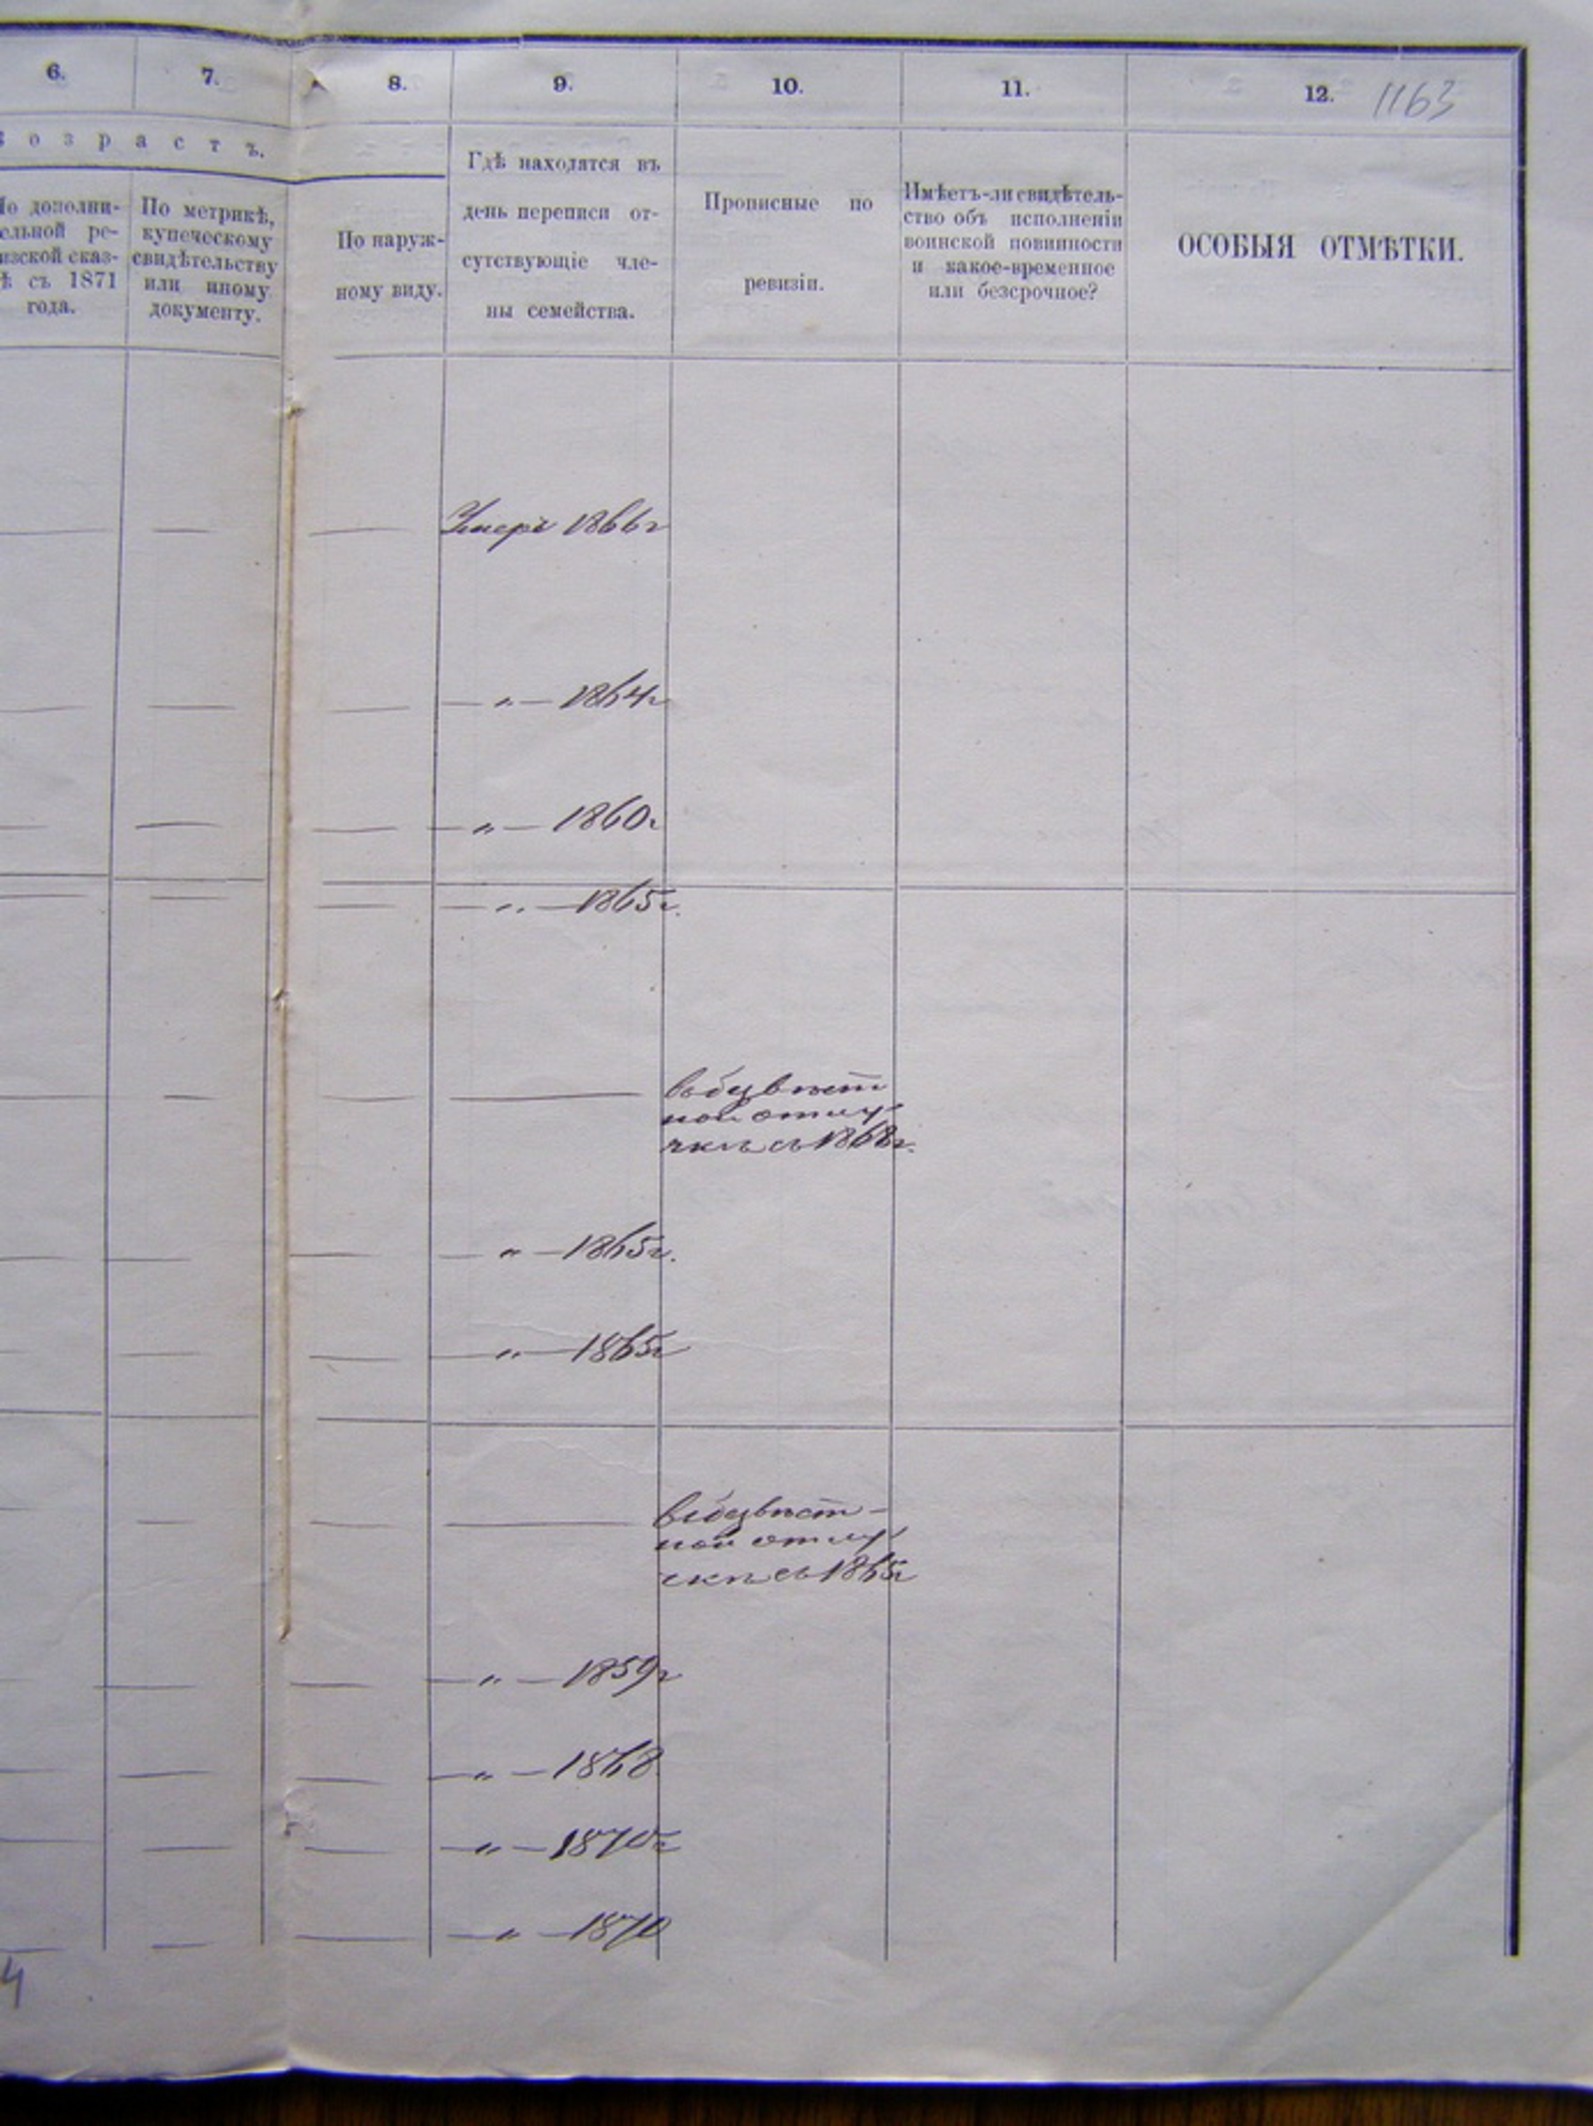 6. 7. 8. 9. 10. 11. 12. 1163
возрастъ.
По дополни-
ельной ре-
изской сказ-
ѣ съ 1871
года.
По метрикѣ,
купеческому
свидѣтельству
или иному
документу.
По наруж-
ному виду.
Гдѣ находятся въ
день переписи от-
сутствующіе чле-
ны семейства.
Прописные по
ревизіи.
Имѣетъ-ли свидѣтель-
ство объ исполненіи
воинской повинности
и какое-временное
или безсрочное?
ОСОБЫЯ ОТМѢТКИ.
Умеръ 1866г
— „ — 1864г
— „ — 1860г
— „ — 1865г.
въ безвѣст
ной отлу-
чкѣ съ 1868г.
— „ — 1865г.
— „ — 1865г
въ безвѣст-
ной отлу-
чкѣ съ 1865г
— „ — 1859г
— „ — 1868
— „ — 1870г
— „ — 1870
4